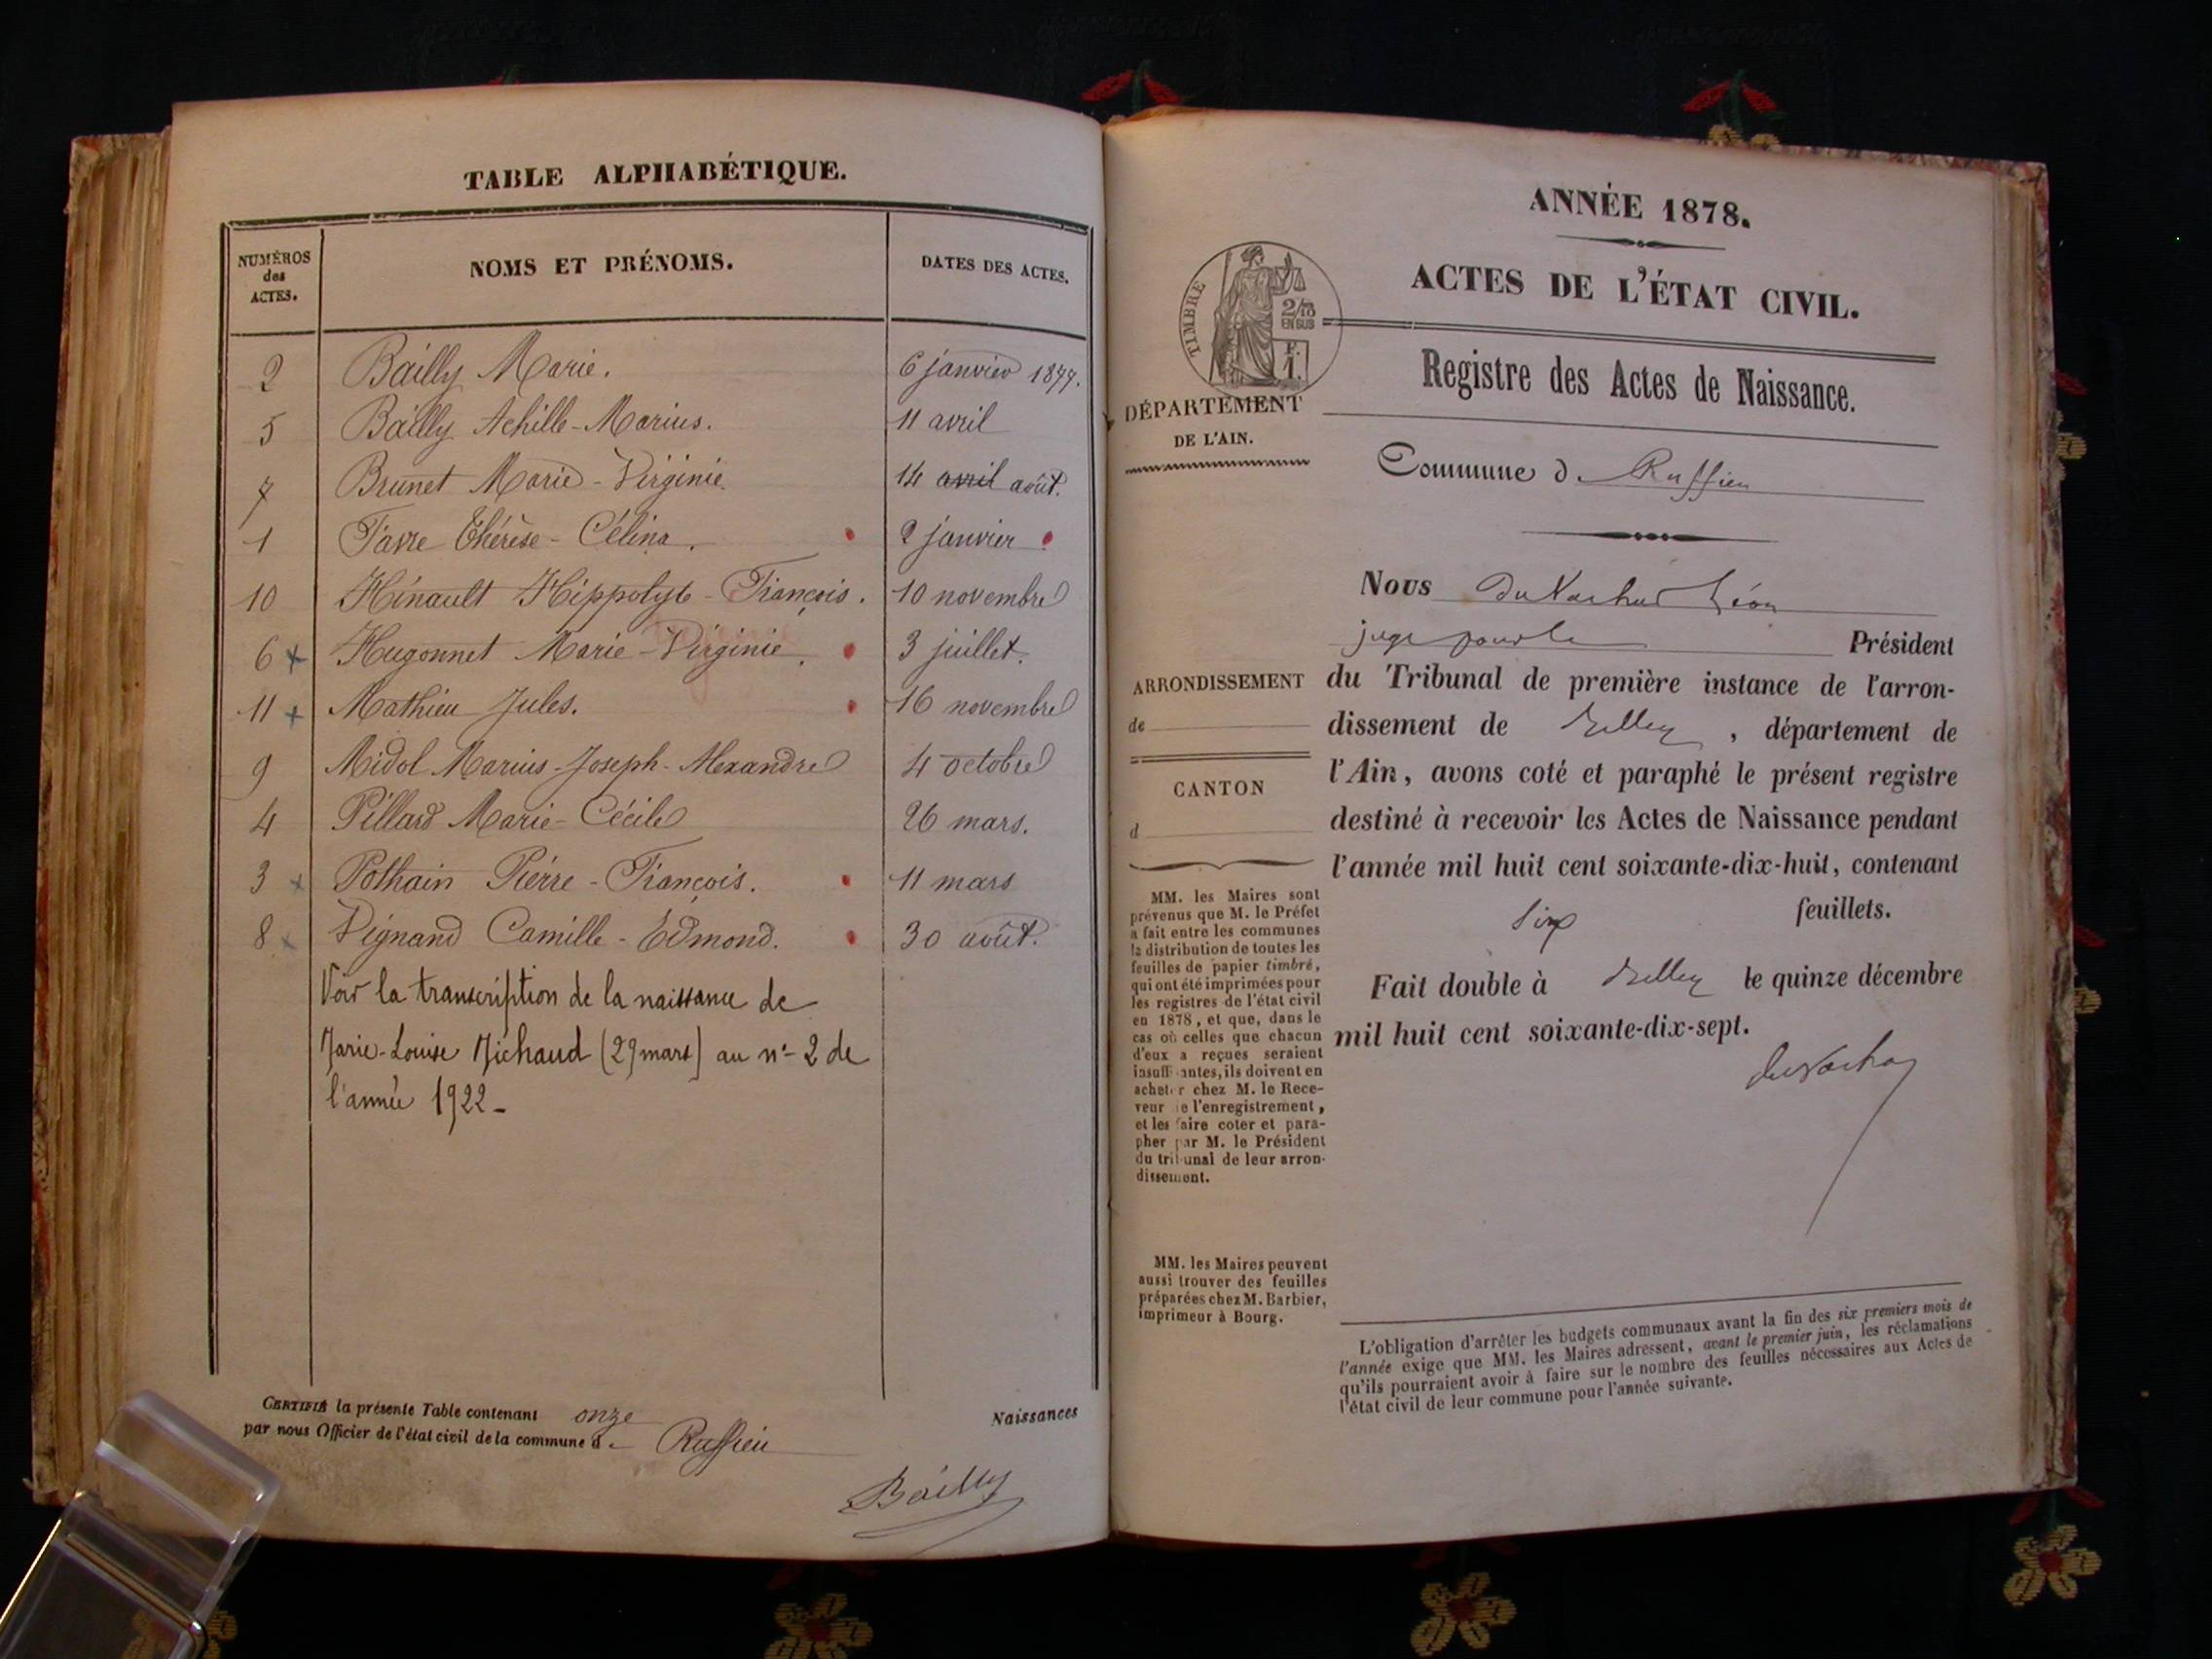 TABLE ALPHABÉTIQUE.
NUMÉROS des ACTES.
NOMS ET PRÉNOMS.
DATES DES ACTES.
2 Bailly Marie. 6 janvier 1877.
5 Bailly Achille-Marius. 11 avril
7 Brunet Marie-Virginie 14 avril août.
1 Favre Thérèse-Célina. 2 janvier
10 Hinault Hippolyte-François. 10 novembre
6 + Hugonnet Marie-Virginie. 3 juillet.
11 + Mathieu Jules. 16 novembre
9 Midol Marius-Joseph-Alexandre 4 octobre
4 Pillard Marie-Cécile 26 mars.
3 + Pothain Pierre-François. 11 mars
8 + Vignand Camille-Edmond. 30 août.
Voir la transcription de la naissance de
Marie-Louise Michaud (29 mars) au n° 2 de
l'année 1922 -
CERTIFIÉ la présente Table contenant onze Naissances
par nous Officier de l'état civil de la commune d - Ruffieu
Bailly
ANNÉE 1878.
ACTES DE L'ÉTAT CIVIL.
TIMBRE
2/10
EN SUS
F.
1.
Registre des Actes de Naissance.
DÉPARTEMENT
DE L'AIN.
Commune d - Ruffieu
Nous Léon
juge pour le Président
du Tribunal de première instance de l'arron-
dissement de Belley, département de
l'Ain, avons coté et paraphé le présent registre
destiné à recevoir les Actes de Naissance pendant
l'année mil huit cent soixante-dix-huit, contenant
six feuillets.
Fait double à Belley le quinze décembre
mil huit cent soixante-dix-sept.
ARRONDISSEMENT
de
CANTON
d
MM. les Maires sont
prévenus que M. le Préfet
a fait entre les communes
la distribution de toutes les
feuilles de papier timbré,
qui ont été imprimées pour
les registres de l'état civil
en 1878, et que, dans le
cas où celles que chacun
d'eux a reçues seraient
insuffisantes, ils doivent en
acheter chez M. le Rece-
veur de l'enregistrement,
et les faire coter et para-
pher par M. le Président
du tribunal de leur arron-
dissement.
MM. les Maires peuvent
aussi trouver des feuilles
préparées chez M. Barbier,
imprimeur à Bourg.
L'obligation d'arrêter les budgets communaux avant la fin des six premiers mois de
l'année exige que MM. les Maires adressent, avant le premier juin, les réclamations
qu'ils pourraient avoir à faire sur le nombre des feuilles nécessaires aux Actes de
l'état civil de leur commune pour l'année suivante.